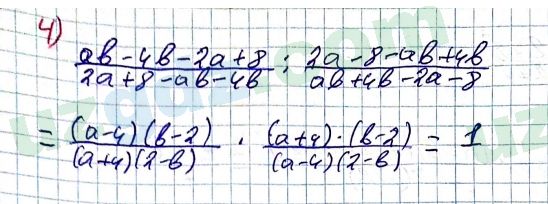 4)
(ab - 4b - 2a + 8)/(2a + 8 - ab - 4b) : (2a - 8 - ab + 4b)/(ab + 4b - 2a - 8)
= ((a-4)(b-2))/((a+4)(2-b)) · ((a+4)·(b-2))/((a-4)(2-b)) = 1